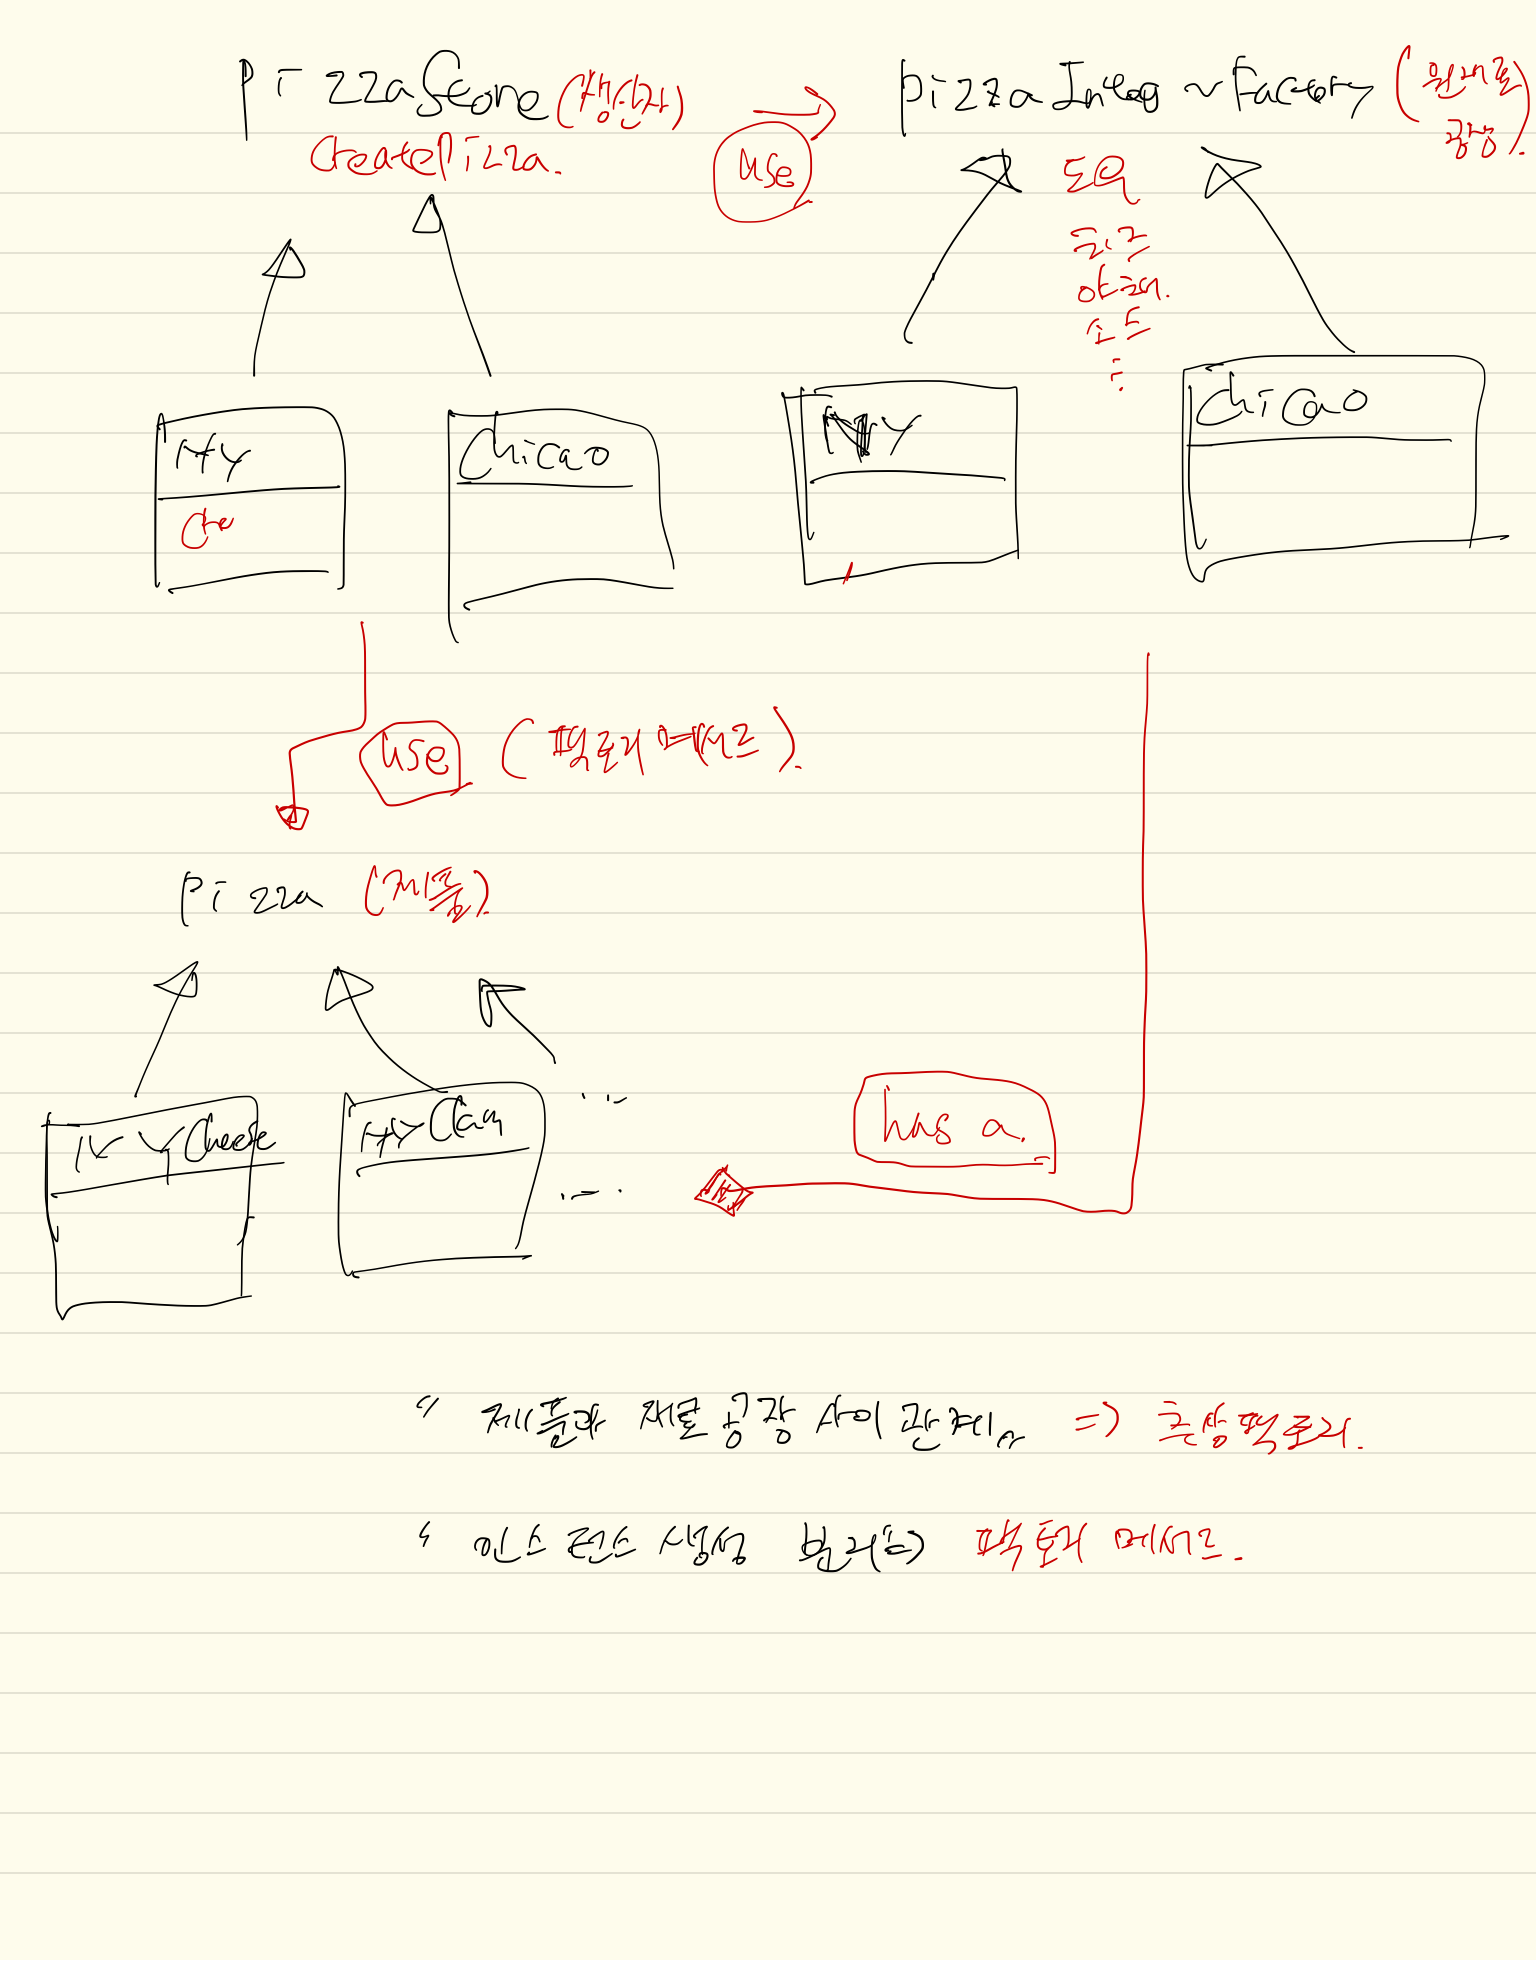 PizzaStore (생산자)
CreatePizza.
use
pizza Factory (원재료
공장).
도우
치즈
야채.
소스
NY
Chicao
NY
Chicao
Cre
use (팩토리 메서드).
Pizza (제품).
NYCheese
NYClam
...
...
has a.
" 제품과 재료 공장 사이 관계 => 추상팩토리.
인스턴스 생성 분리 => 팩토리 메서드.